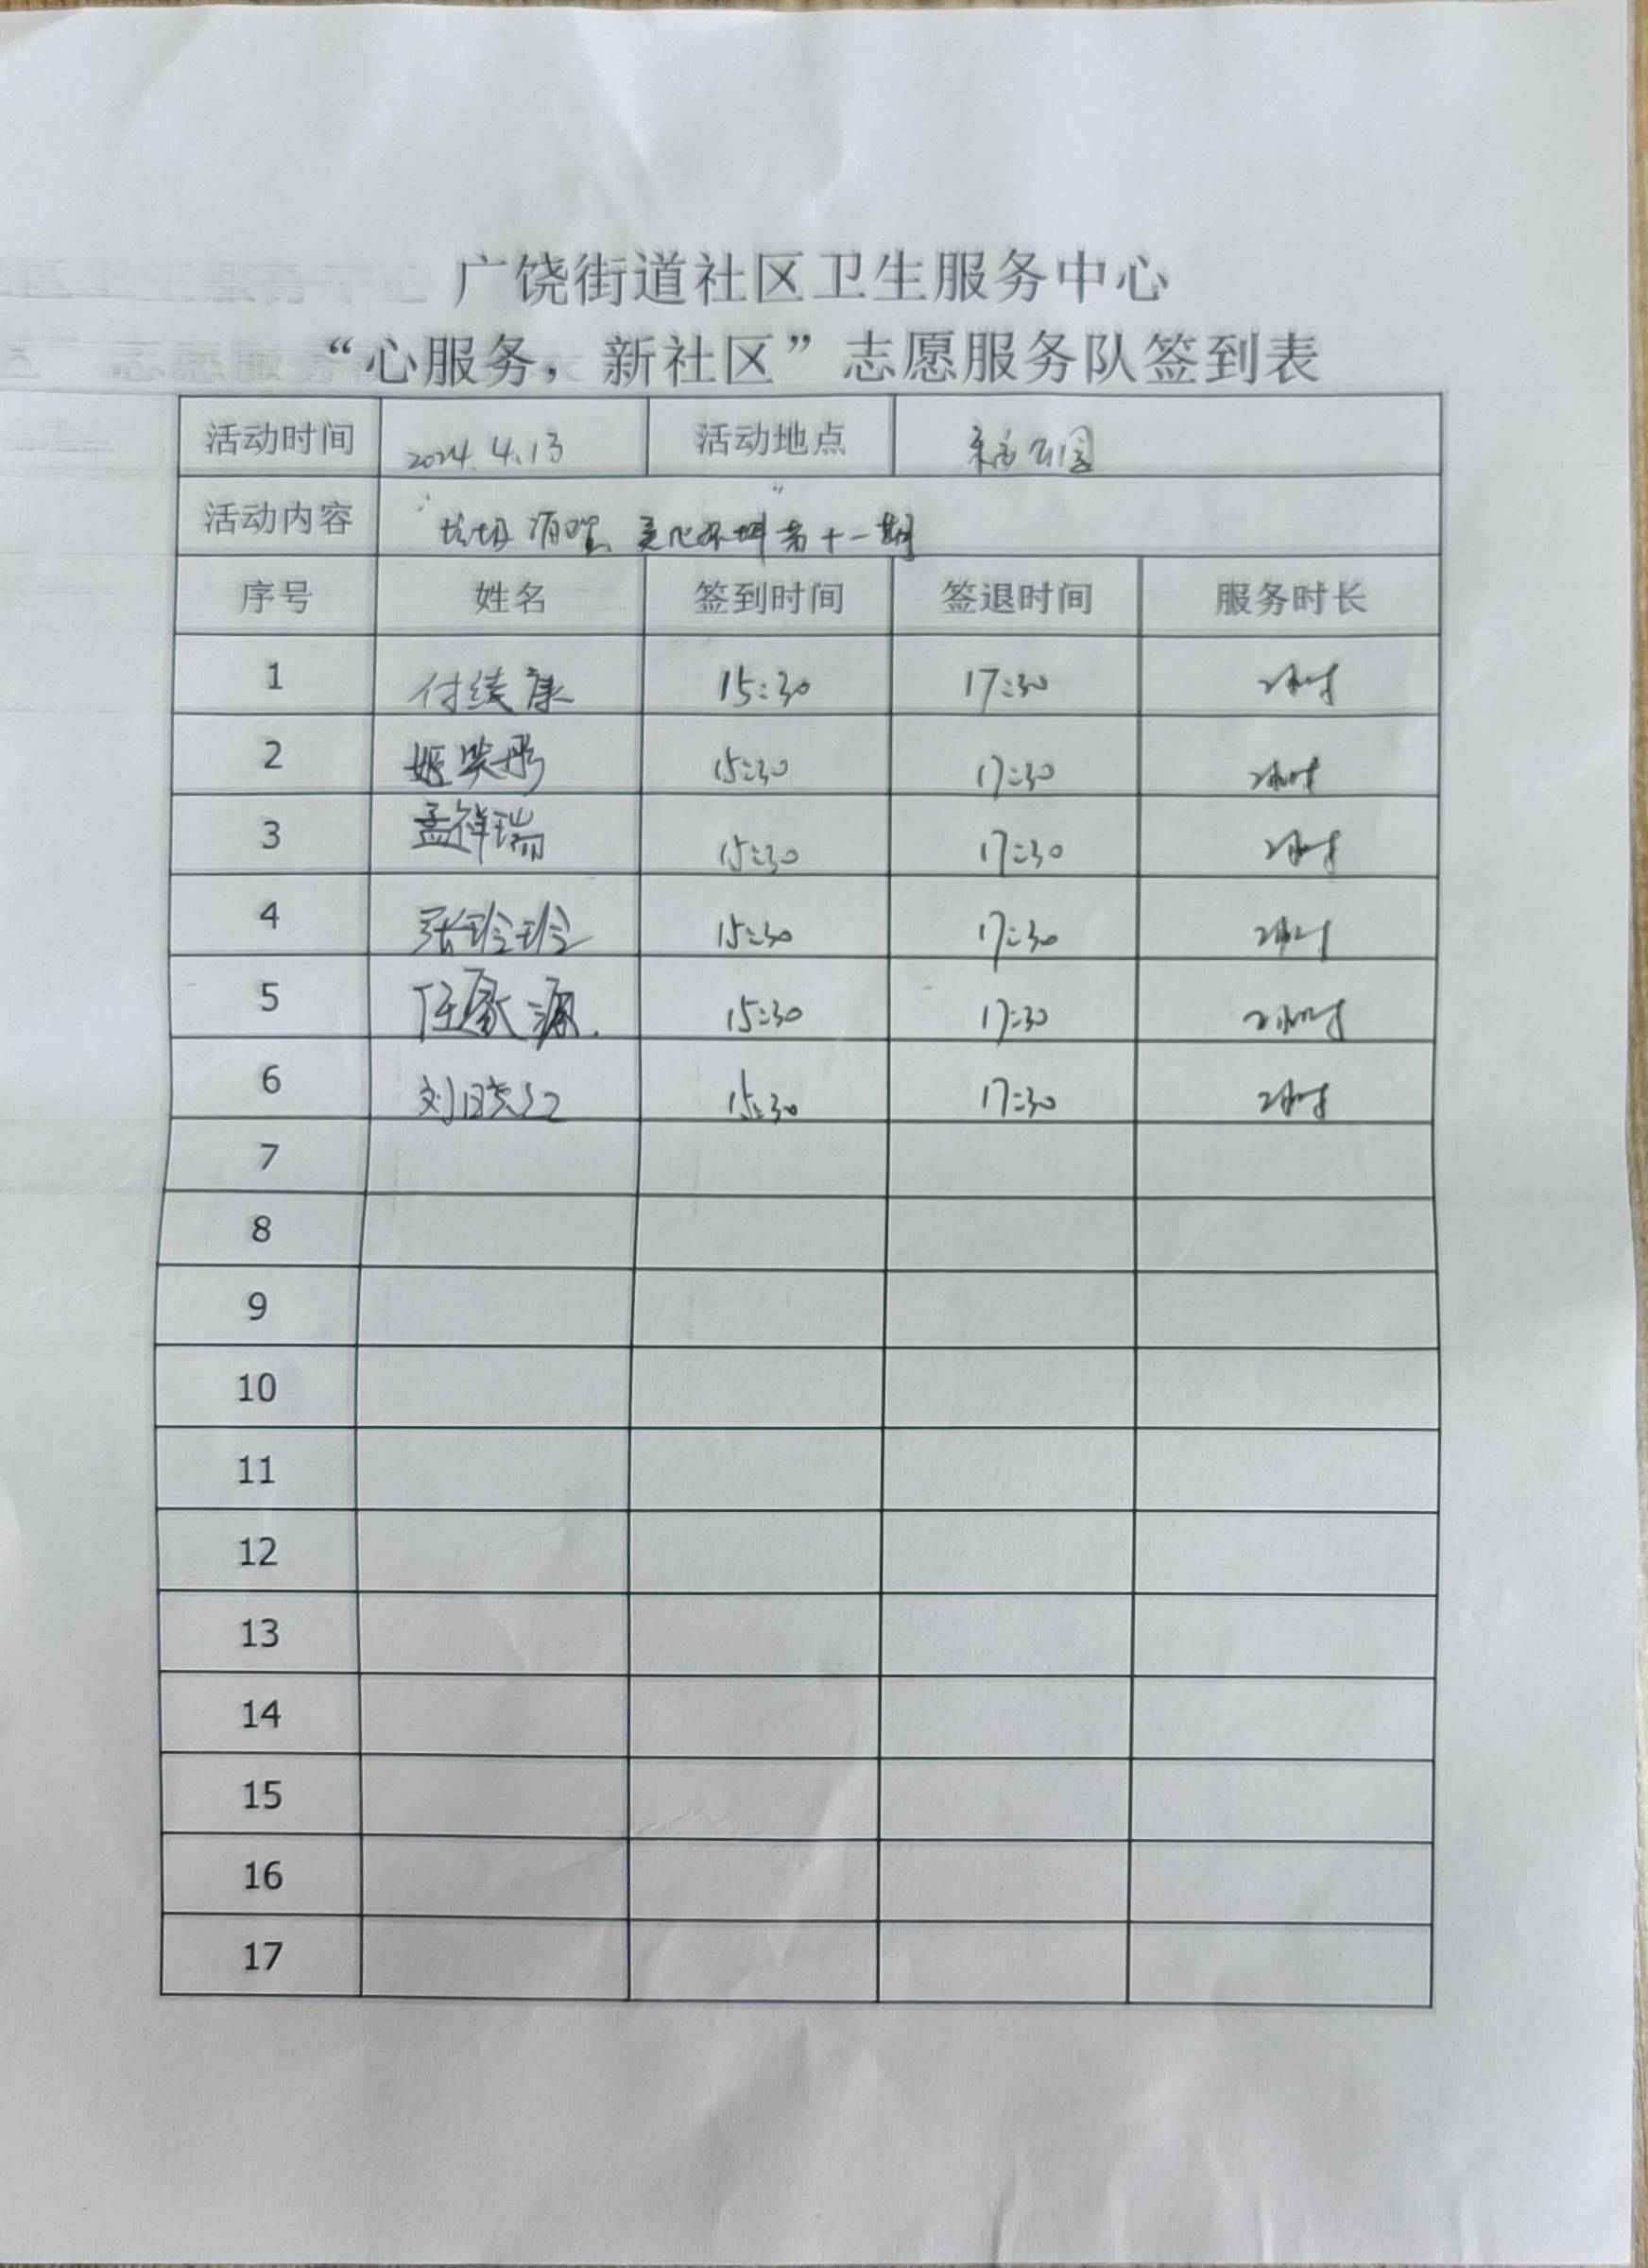 广饶街道社区卫生服务中心
“心服务，新社区”志愿服务队签到表
活动时间 2024.4.13 活动地点 公园
活动内容 “垃圾清零、美化环境”第十一期
序号 姓名 签到时间 签退时间 服务时长
1 付续康 15:30 17:30 2小时
2 姬笑彤 15:30 17:30 2小时
3 孟祥瑞 15:30 17:30 2小时
4 张玲玲 15:30 17:30 2小时
5 任家源 15:30 17:30 2小时
6 刘晓红 15:30 17:30 2小时
7
8
9
10
11
12
13
14
15
16
17